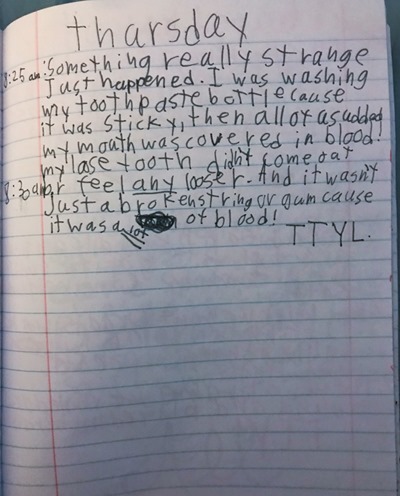 tharsday
8:25 am: Something really strange
Just happened. I was washing
my toothpaste bottle cause
it was sticky, then all of asudded
my mouth was covered in blood!
my lase tooth didn't come oat
8:30 am or feel any looser. And it wasn't
Just a broken string or gum cause
it was a lot of blood!
TTYL.